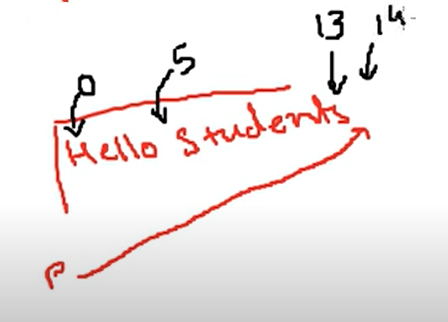 13 14
0 5
Hello Students
P